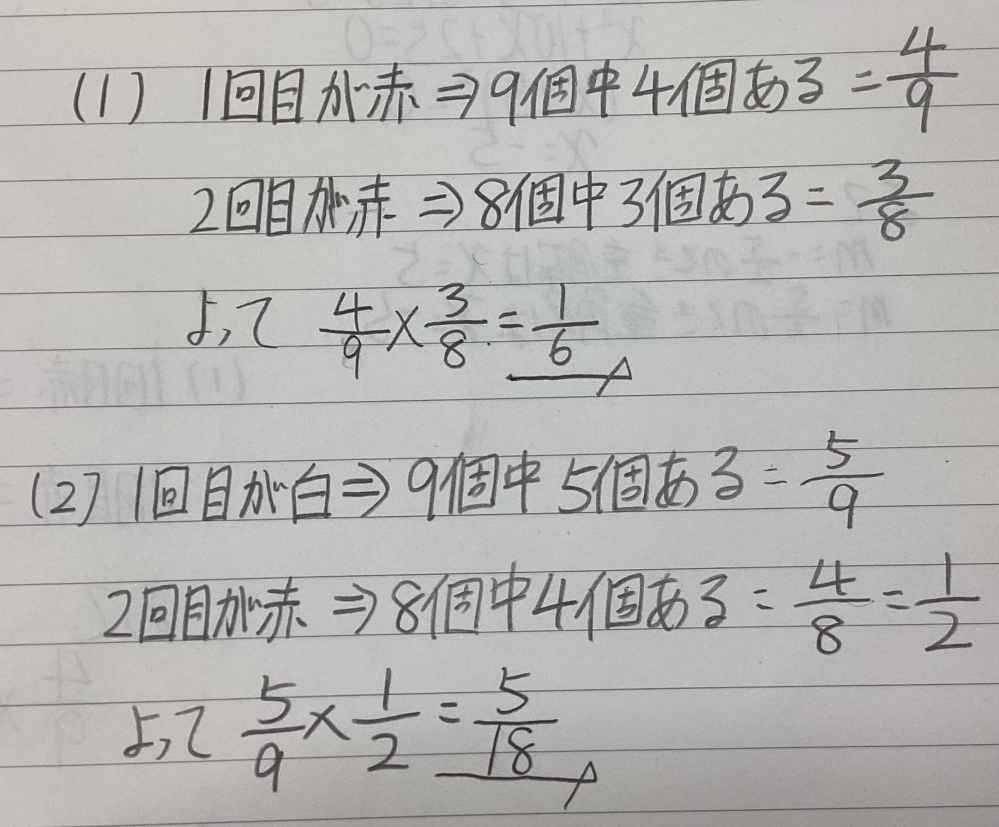 (1) 1回目が赤⇒9個中4個ある=4/9
2回目が赤⇒8個中3個ある=3/8
よって 4/9×3/8=1/6
(2) 1回目が白⇒9個中5個ある=5/9
2回目が赤⇒8個中4個ある=4/8=1/2
よって 5/9×1/2=5/18